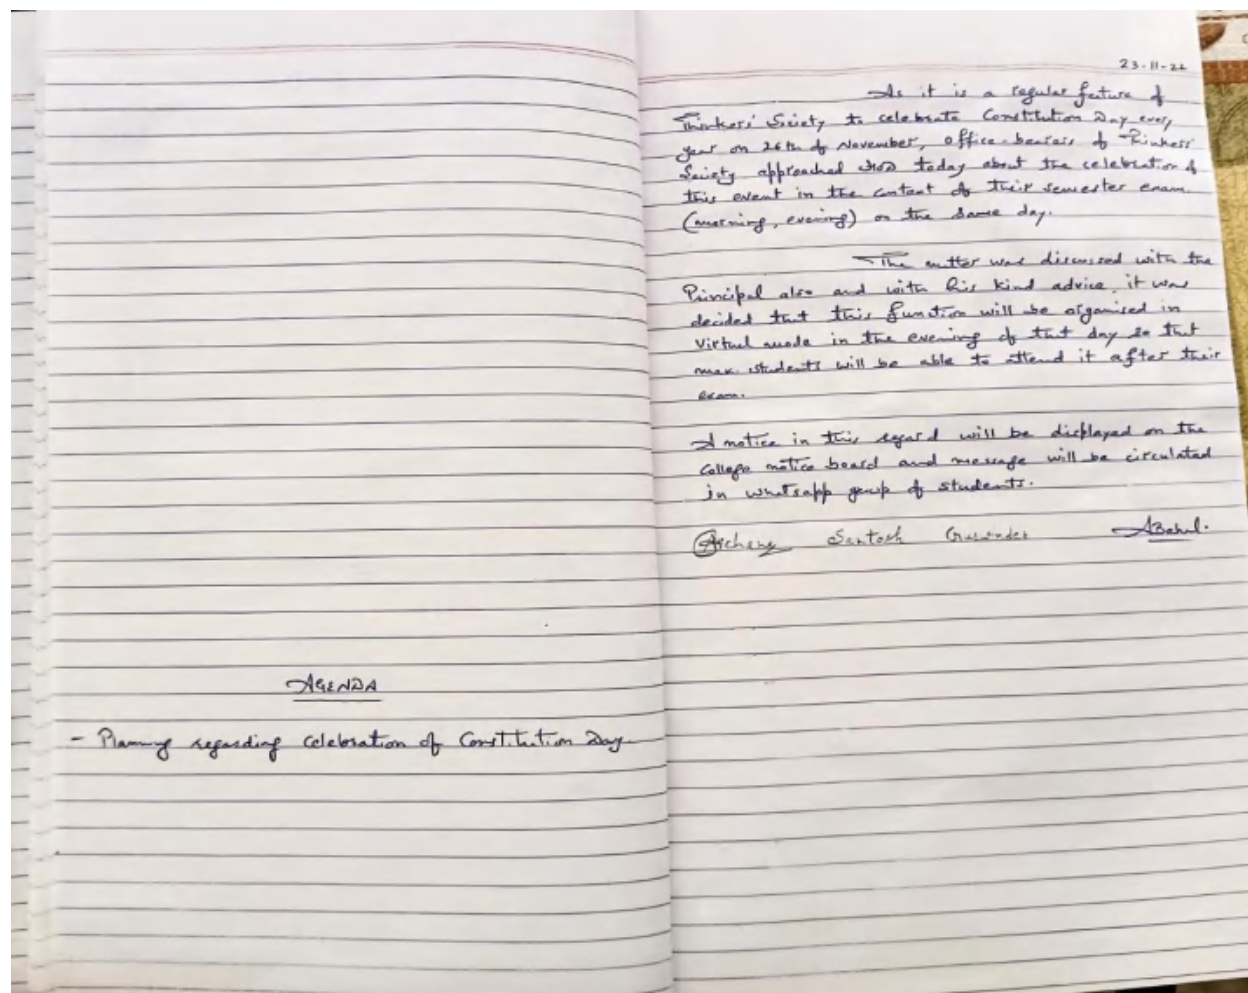 AGENDA
- Planning regarding celebration of Constitution Day
23-11-22
As it is a regular feature of
Thinkers' Society to celebrate Constitution Day every
year on 26th of November, office-bearers of Thinkers'
Society approached HOD today about the celebration of
this event in the context of their semester exam
(morning, evening) on the same day.
The matter was discussed with the
Principal also and with his kind advice, it was
decided that this function will be organised in
Virtual mode in the evening of that day so that
max. students will be able to attend it after their
exam.
A notice in this regard will be displayed on the
College notice board and message will be circulated
in whatsapp group of students.
Archana Santosh Gurinder